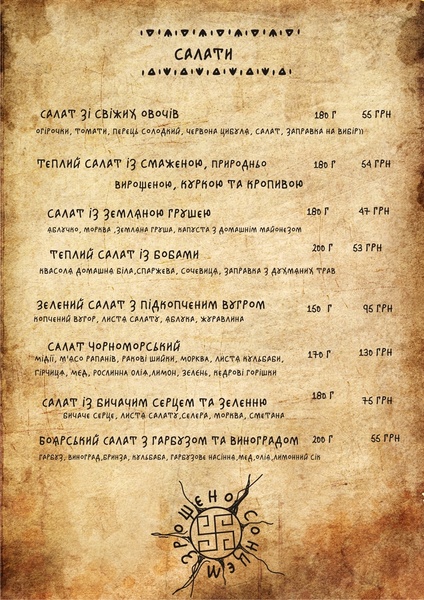 САЛАТИ
САЛАТ ЗІ СВІЖИХ ОВОЧІВ 180 Г 55 ГРН
ОГІРОЧКИ, ТОМАТИ, ПЕРЕЦЬ СОЛОДКИЙ, ЧЕРВОНА ЦИБУЛЯ, САЛАТ, ЗАПРАВКА НА ВИБІР))
ТЕПЛИЙ САЛАТ ІЗ СМАЖЕНОЮ, ПРИРОДНЬО 180 Г 54 ГРН
ВИРОЩЕНОЮ, КУРКОЮ ТА КРОПИВОЮ
САЛАТ ІЗ ЗЕМЛЯНОЮ ГРУШЕЮ 180 Г 47 ГРН
ЯБЛУЧКО, МОРКВА ,ЗЕМЛЯНА ГРУША, КАПУСТА З ДОМАШНІМ МАЙОНЕЗОМ
ТЕПЛИЙ САЛАТ ІЗ БОБАМИ 200 Г 53 ГРН
КВАСОЛЯ ДОМАШНЯ БІЛА,СПАРЖЕВА, СОЧЕВИЦЯ, ЗАПРАВКА З ДУХМЯНИХ ТРАВ
ЗЕЛЕНИЙ САЛАТ З ПІДКОПЧЕНИМ ВУГРОМ 150 Г 95 ГРН
КОПЧЕНИЙ ВУГОР, ЛИСТЯ САЛАТУ, ЯБЛУКА, ЖУРАВЛИНА
САЛАТ ЧОРНОМОРСЬКИЙ 170 Г 130 ГРН
МІДІЇ, М'ЯСО РАПАНІВ, РАКОВІ ШИЙКИ, МОРКВА, ЛИСТЯ КУЛЬБАБИ,
ГІРЧИЦЯ, МЕД, РОСЛИННА ОЛІЯ,ЛИМОН, ЗЕЛЕНЬ, КЕДРОВІ ГОРІШКИ
САЛАТ ІЗ БИЧАЧИМ СЕРЦЕМ ТА ЗЕЛЕННЮ 180 Г 75 ГРН
БИЧАЧЕ СЕРЦЕ, ЛИСТЯ САЛАТУ,СЕЛЕРА, МОРКВА, СМЕТАНА
БОЯРСЬКИЙ САЛАТ З ГАРБУЗОМ ТА ВИНОГРАДОМ 200 Г 55 ГРН
ГАРБУЗ, ВИНОГРАД,БРИНЗА, КУЛЬБАБА, ГАРБУЗОВЕ НАСІННЯ,МЕД,ОЛІЯ,ЛИМОННИЙ СІК
ЗРОЩЕНО СОНЦЕМ